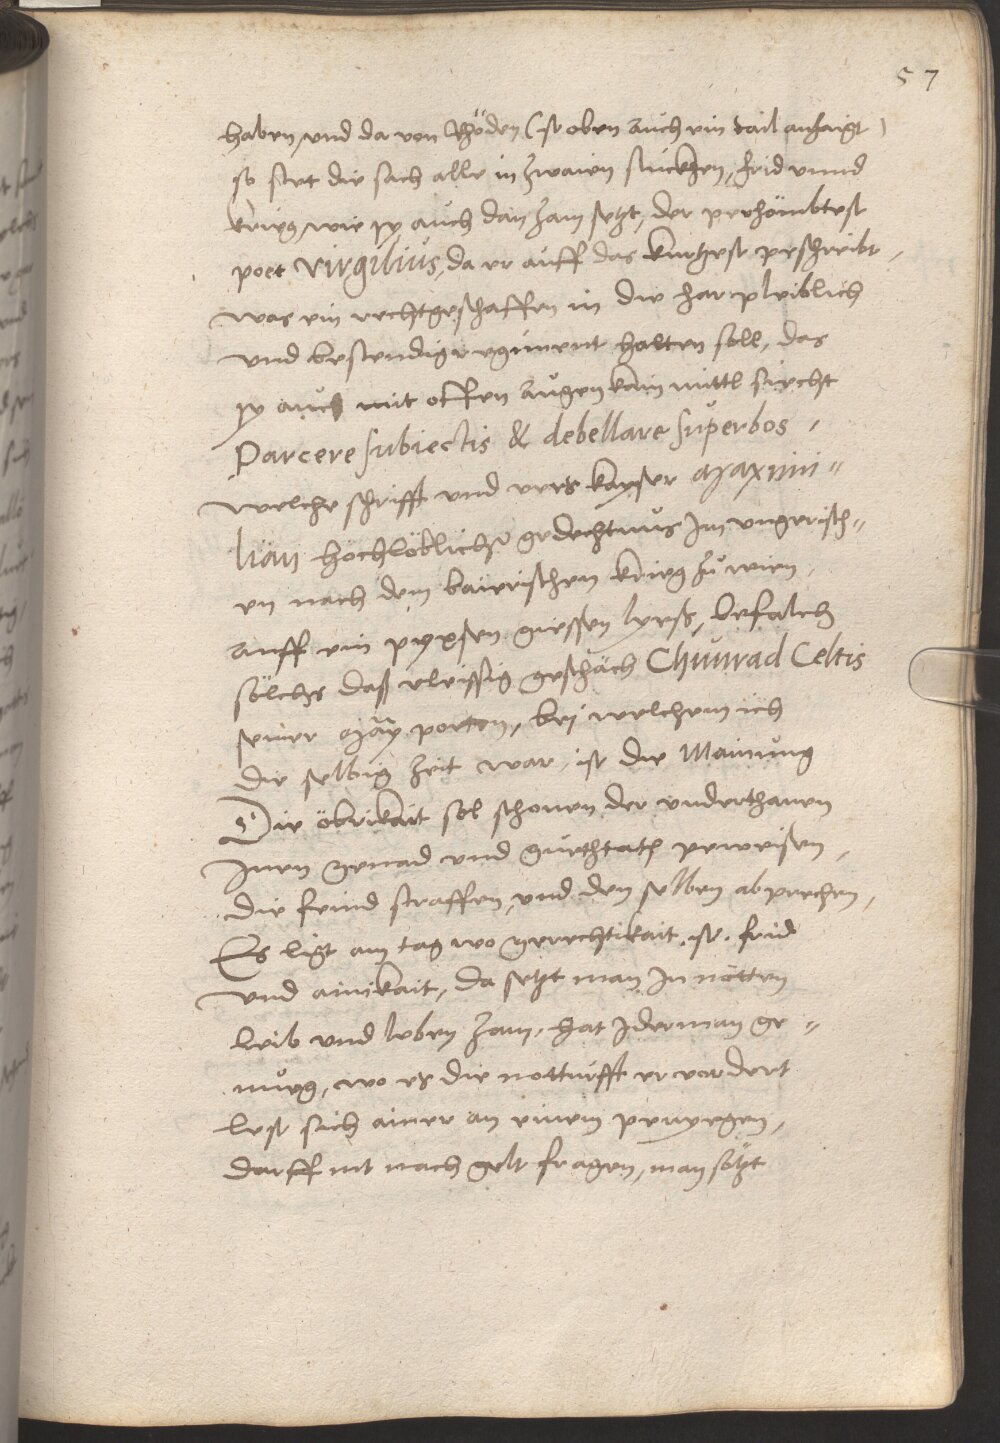 57
haben, und da von Rhöden (ist oben auch ein tail anzaigt)
so stet die sach alle in zwaien stückhen, frid unnd
krieg, wie sy auch dan zam setzt, der perhömbtest
poet Virgilius, da er auff das kurtzest peschreibt,
was ein rechtgeschaffen in die har pleiblich
und bestendig regiment halten soll, das
sy auch mit offen augen kain mittl siecht
Parcere subiectis & debellare superbos,
welche schrifft und vers kayser Maximi-
lian hochlöblicher gedechtnus Im ungerisch-
en nach dem bairischen krieg zu wien
auff ein pyxsen giessen lyess, befalch
sölchs daß vleissig geschäch Chunrad Celtis
seiner May. poeten, bej welchem ich
die selbig zeit war, ist die Mainung
Die öbrikait sol schonen der underthanen
Inen genad und guethtatt peweisen,
die feind straffen, und den selben abprechen,
Es ligt am tag wo gerechtikait ist, frid
und ainikait, da setzt man In nötten
leib und leben zam, hat Iderman ge-
nueg, wo es die notturfft ervordert
lest sich ainer an einem penuegen,
darff nit nach gelt fragen, man sötzt